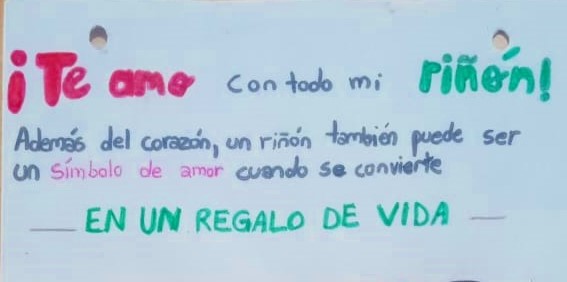 ¡Te amo con todo mi riñón!
Además del corazón, un riñón también puede ser
un símbolo de amor cuando se convierte
EN UN REGALO DE VIDA